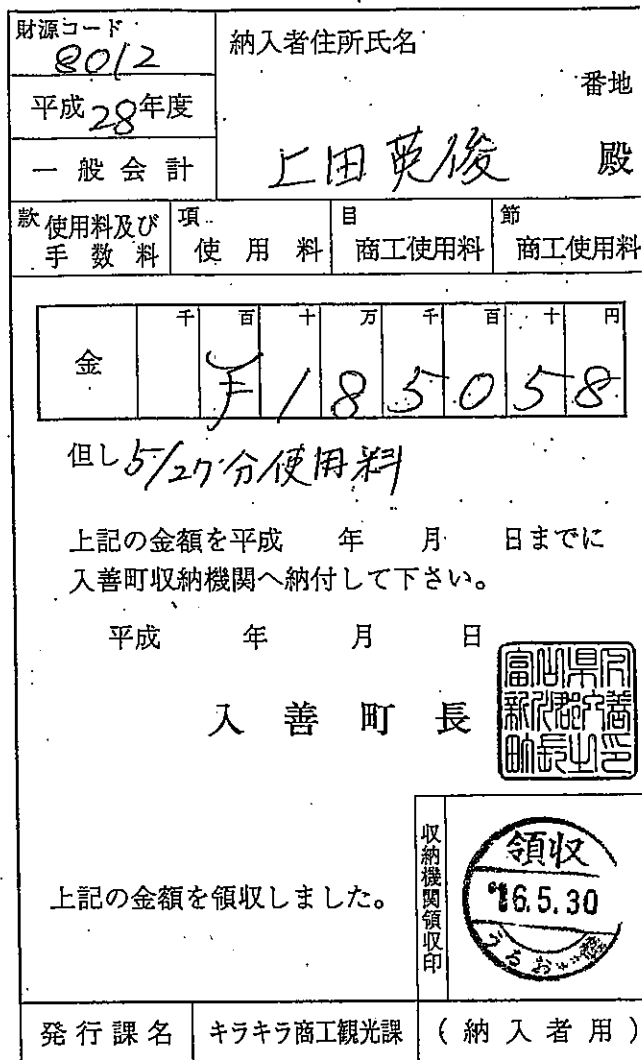 財源コード
8012
平成28年度
一般会計
納入者住所氏名
番地
上田英俊 殿
款 使用料及び手数料 項 使用料 目 商工使用料 節 商工使用料
金 千 百 十 万 千 百 十 円
¥185058
但し 5/27分使用料
上記の金額を平成 年 月 日までに
入善町収納機関へ納付して下さい。
平成 年 月 日
入善町長
富山県下新川郡入善町長之印
上記の金額を領収しました。
収納機関領収印
領収
'16.5.30
発行課名 キラキラ商工観光課 (納入者用)